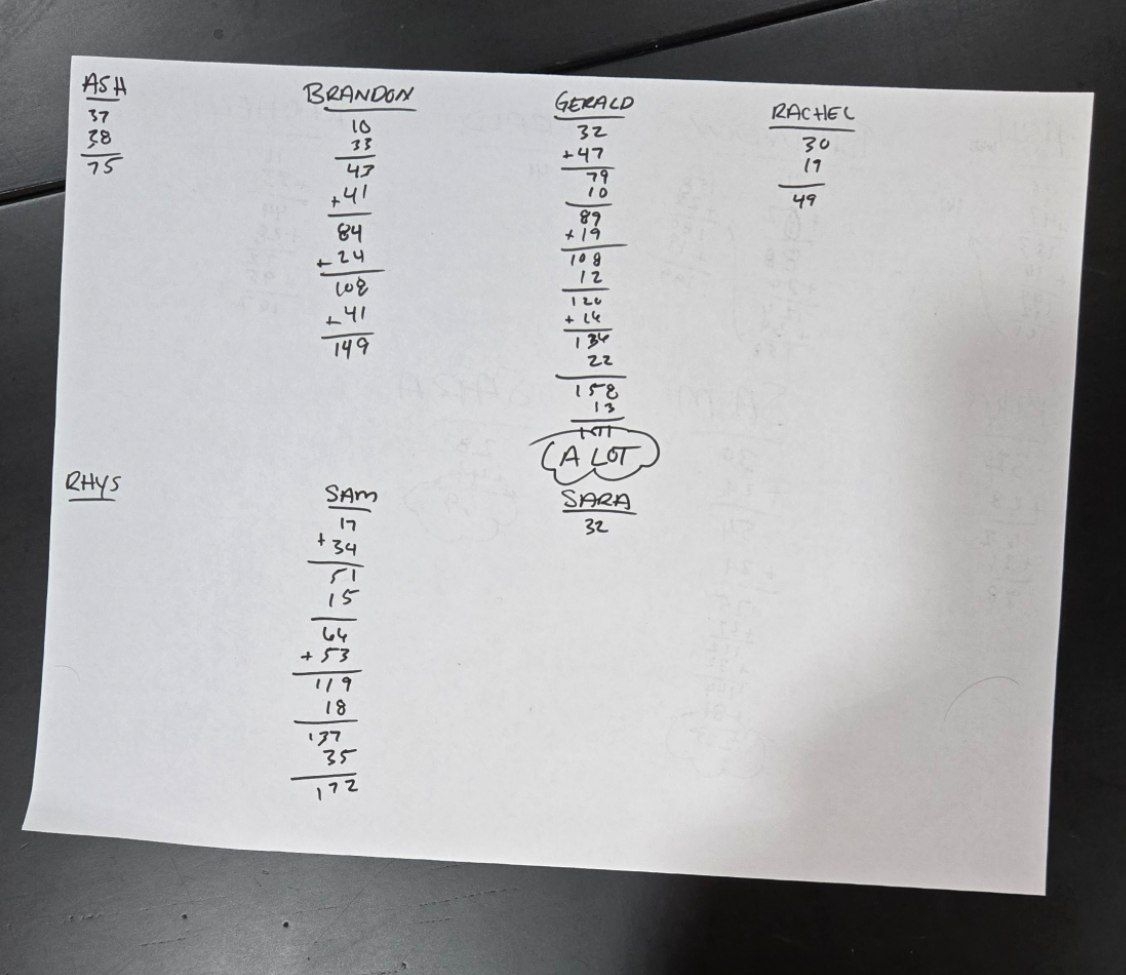 ASH
37
38
75
BRANDON
10
33
43
+41
84
+24
108
+41
149
GERALD
32
+47
79
10
89
+19
108
12
120
+14
134
22
158
13
171
A LOT
RACHEL
30
19
49
RHYS
SAM
17
+34
51
15
64
+53
119
18
137
35
172
SARA
32